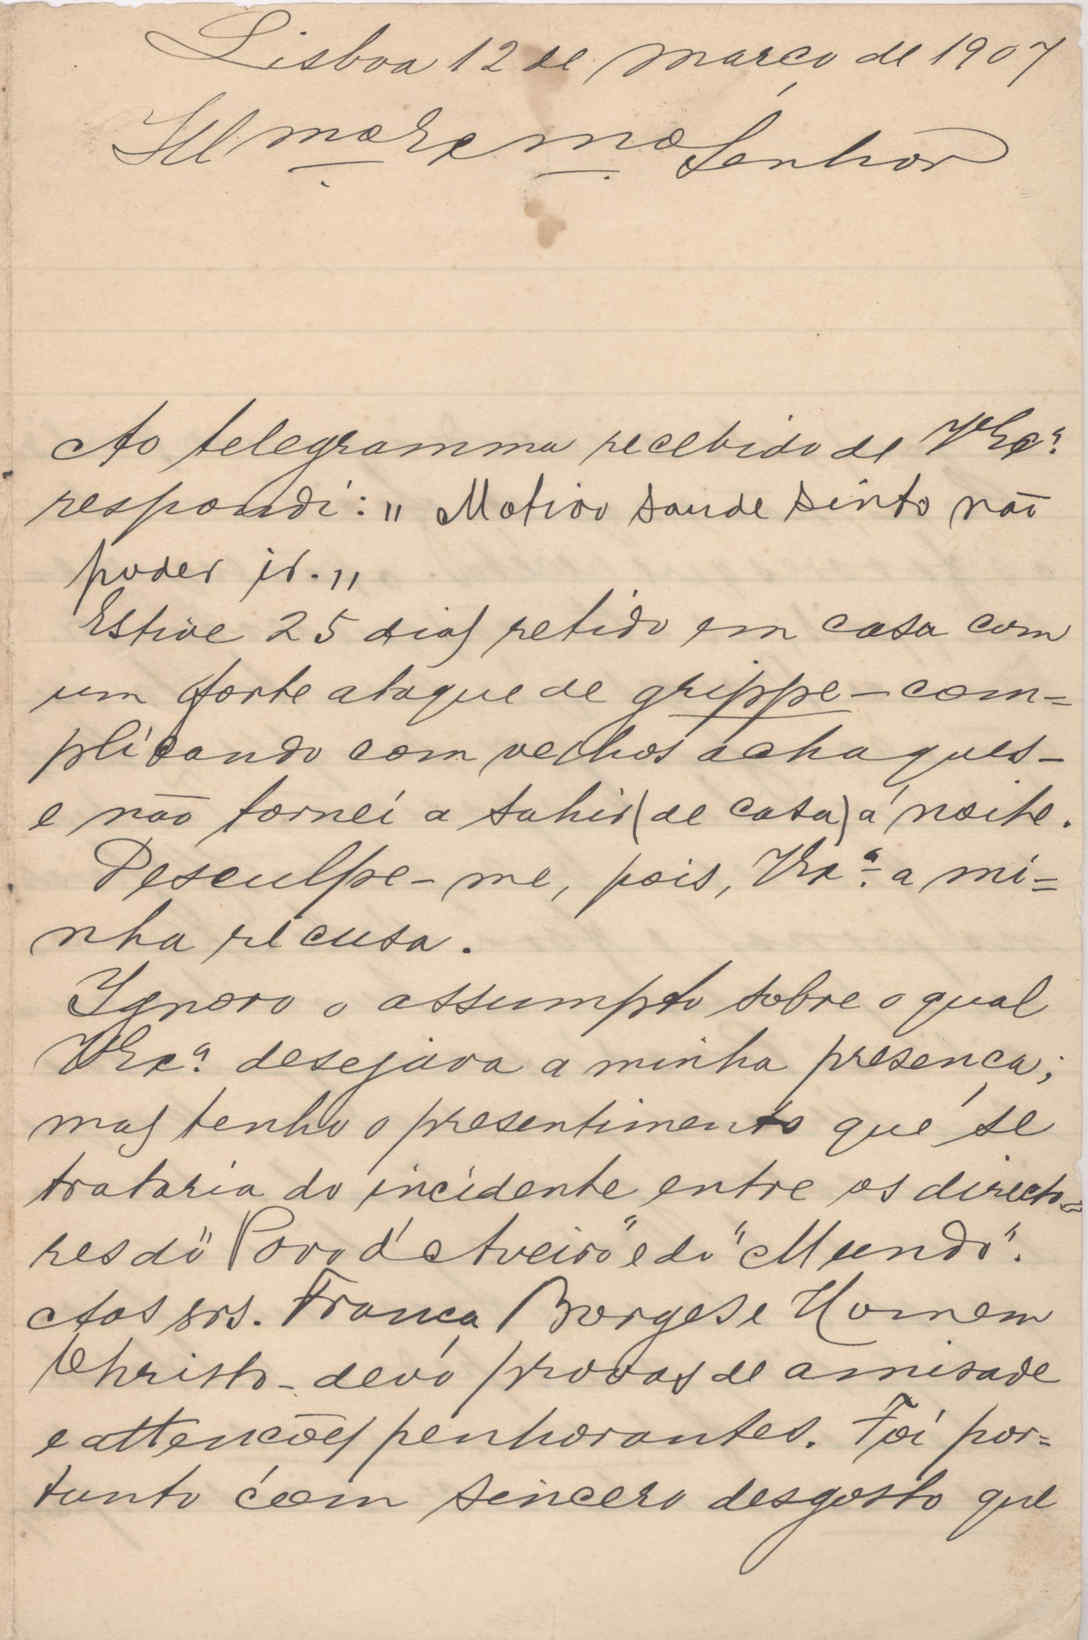 Lisboa 12 de março de 1907
Ill.mo Exc.mo Senhor
Ao telegramma recebido de V Exc.ª
respondi: „ Motivo saude sinto não
poder ir. „
Estive 25 dias retido em casa com
um forte ataque de grippe – com=
plicando com velhos achaques –
e não tornei a sahir (de casa) á noite.
Desculpe-me, pois, V Ex.ª a mi=
nha recusa.
Ignoro o assumpto sobre o qual
V Exc.ª desejava a minha presença;
mas tenho o presentimento que se
trataria do incidente entre os directo=
res do "Povo d'Aveiro" e do "Mundo".
Aos srs. França Borges e Homem
Christo – devo provas de amisade
e attenções penhorantes. Foi por=
tanto com sincero desgosto que